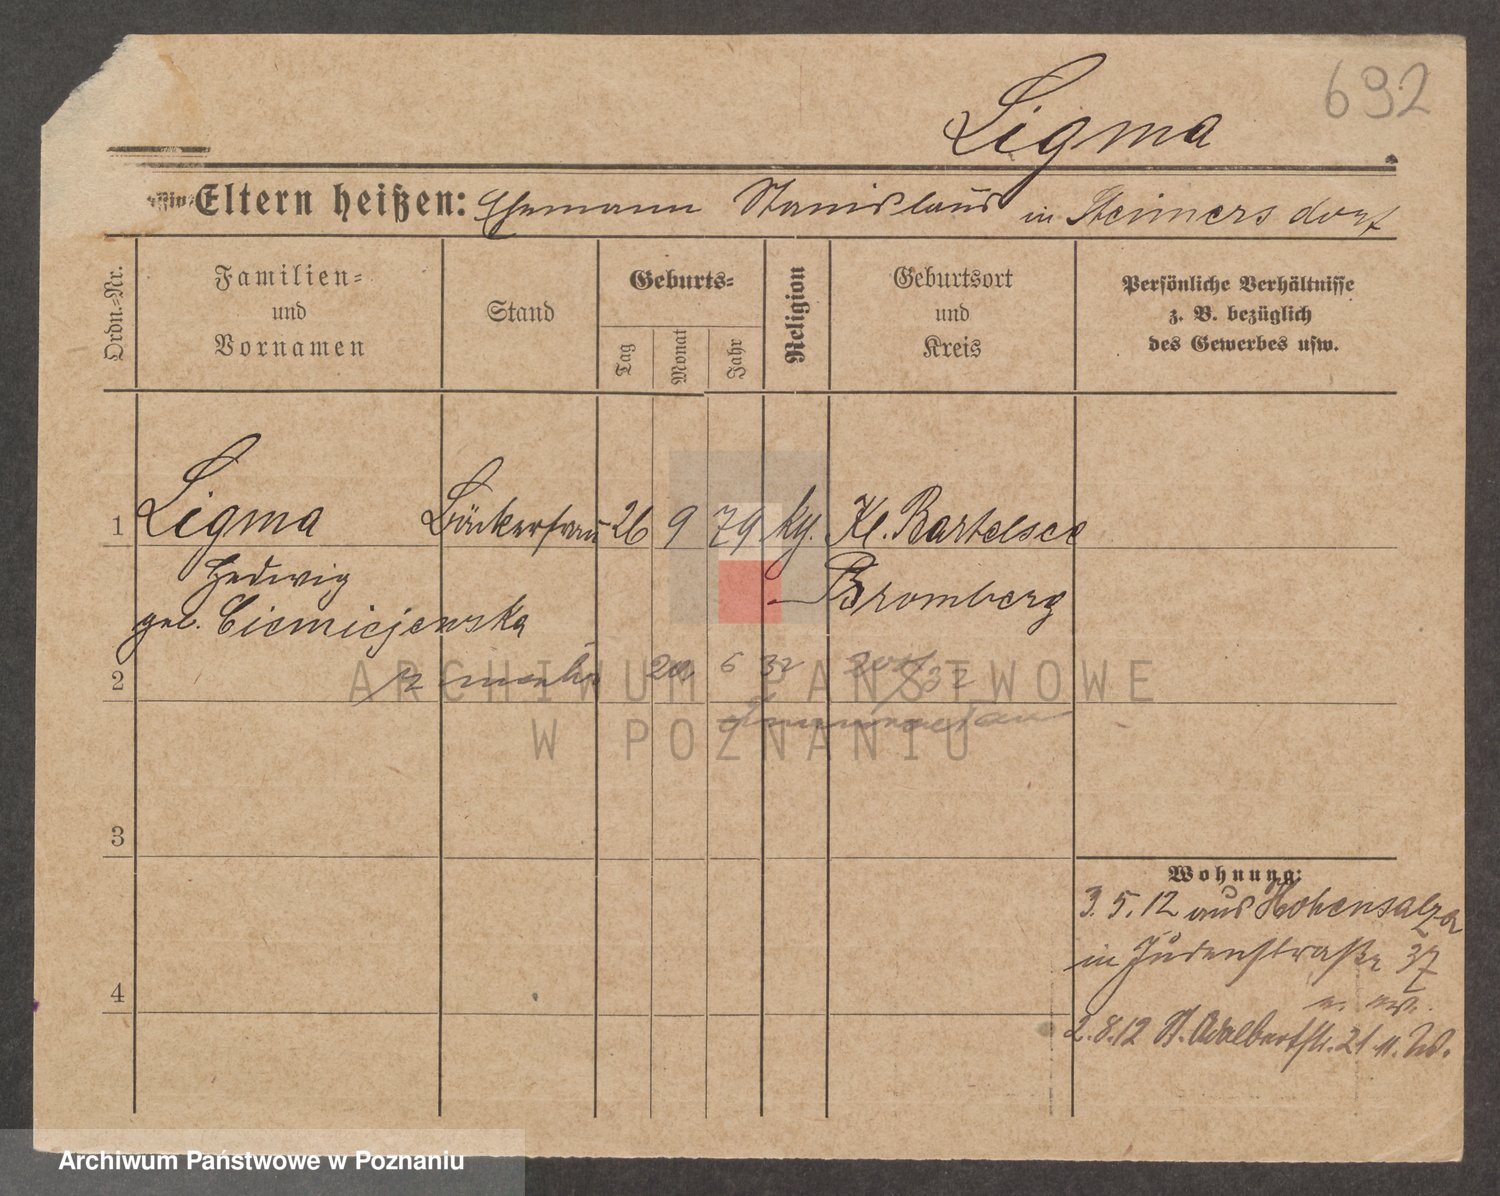 692
Ligma
Eltern heißen: Ehemann Stanislaus in Steimersdorf
Ordn.-Nr.
Familien-
und
Vornamen
Stand
Geburts-
Tag
Monat
Jahr
Religion
Geburtsort
und
Kreis
Persönliche Verhältnisse
z. B. bezüglich
des Gewerbes usw.
1 Ligma Bäckerfrau 26 9 79 kg. Kl. Bartelsee
Hedwig Bromberg
geb. Ciemiejewska
2 20 6 32
3
Wohnung:
3. 5. 12 aus Hohensalza
in Judenstraße 37
4
2. 8. 12 St. Adalbertstr. 21 n. W.
ARCHIWUM PAŃSTWOWE
W POZNANIU
Archiwum Państwowe w Poznaniu